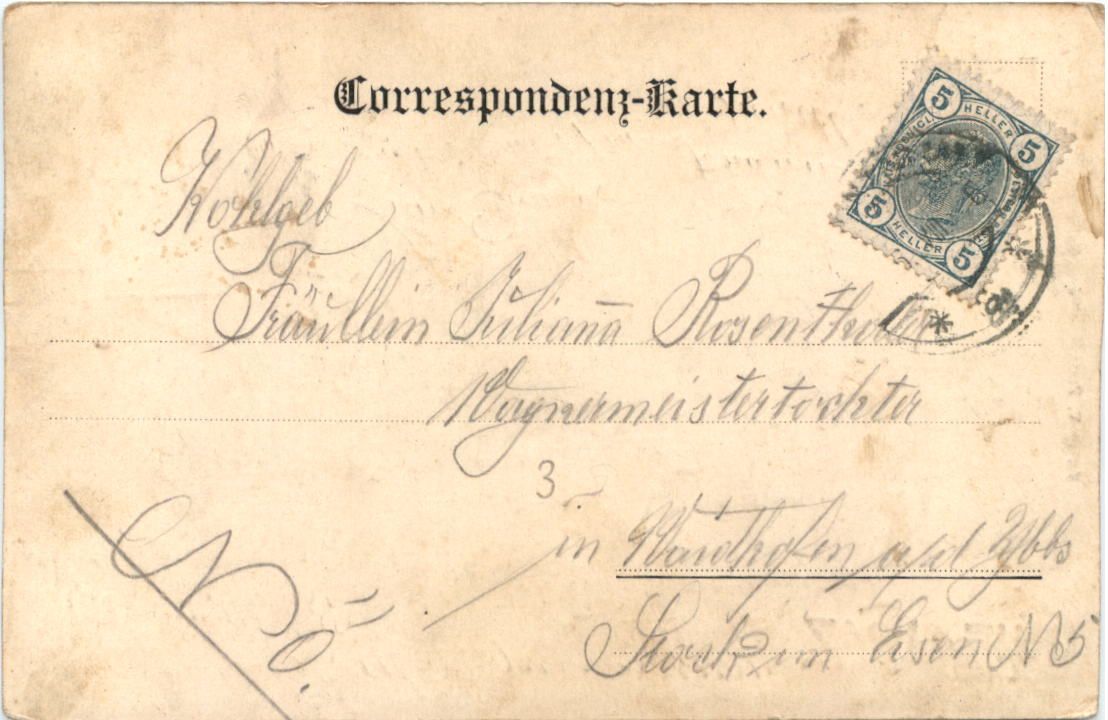 Correspondenz-Karte.
5 HELLER 5
5 HELLER 5
Fräullein Juliana Rosenthaler
Wagnermeistertochter
3
in Waidhofen a/d Ybbs
Stock im Eisen N 5
N.Ö.